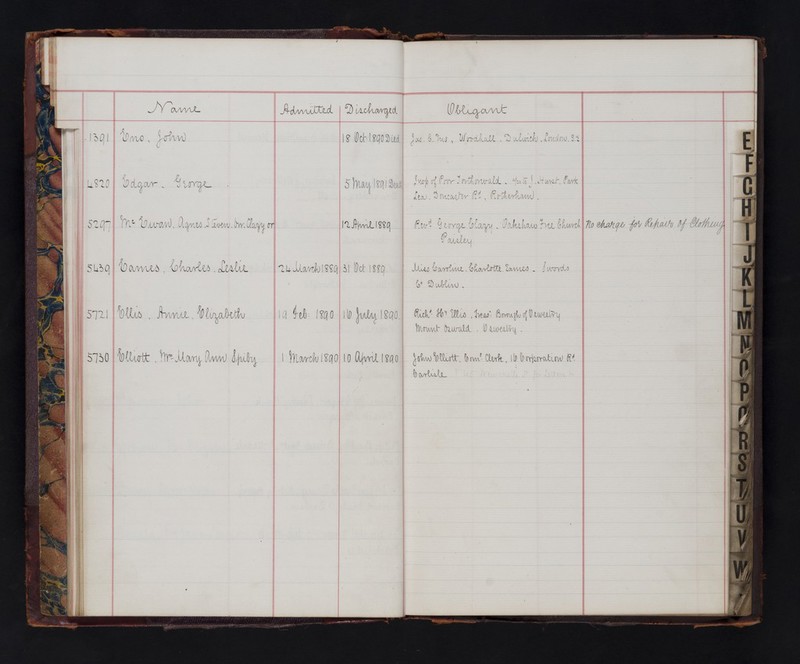 Name Admitted Discharged Obligant
1391 Eno, John 18 Oct 1890 Died
4820 Edgar, George 5 May 1891 Died Insp of Poor Torthorwald
Lea, Doncaster Rd, Rotherham.
5297 Mc Ewan, Agnes Steven, or Glazy or 12 April 1889 Revd George Glazy, Oakshaw Free Church No charge for Repairs of Clothing
Paisley
5439 Eames, Charles, Leslie 24 March 1888 31 Oct 1889 Miss Caroline Charlotte Eames, Swords
Co Dublin.
5721 Ellis, Annie, Elizabeth 19 Feb 1890 16 July 1890 Richd Hy Ellis, Borough of Oswestry
Mount Oswald, Oswestry.
5730 Elliott, Mrs Mary Ann 1 March 1890 10 April 1890 John Elliott, Coml Clerk, 16 Corporation Rd
Carlisle
E
F
G
H
I
J
K
L
M
N
O
P
R
S
T
U
V
W